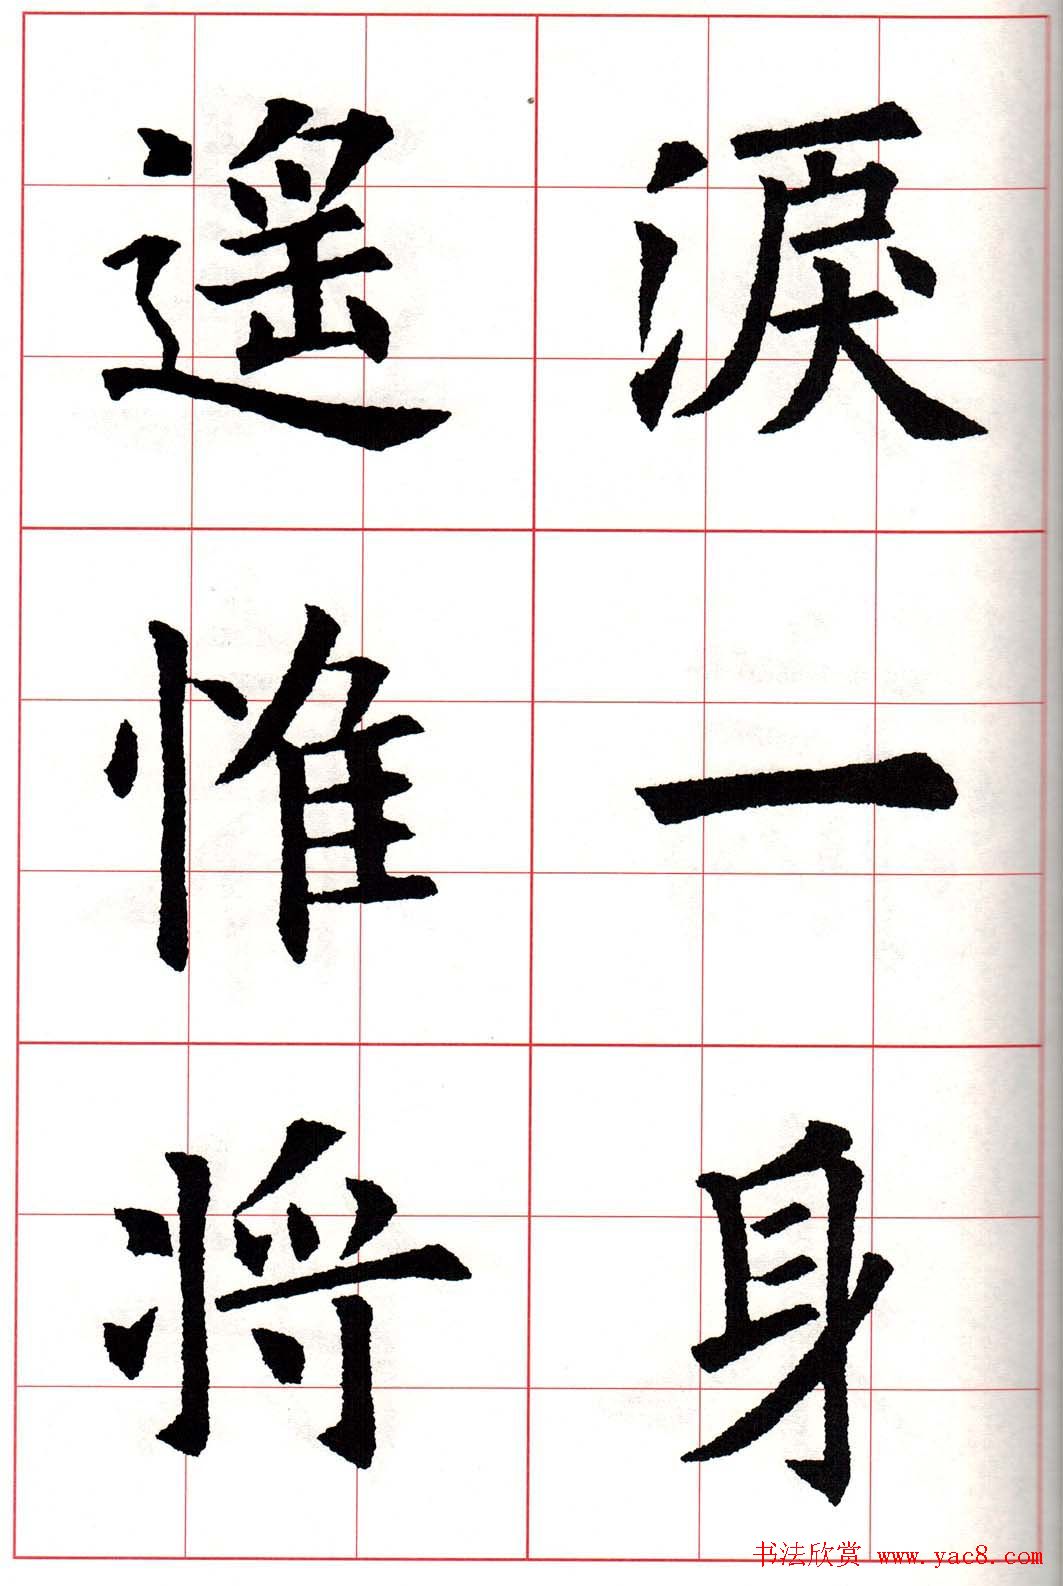 淚一身
遥惟將
书法欣赏 www.yac8.com